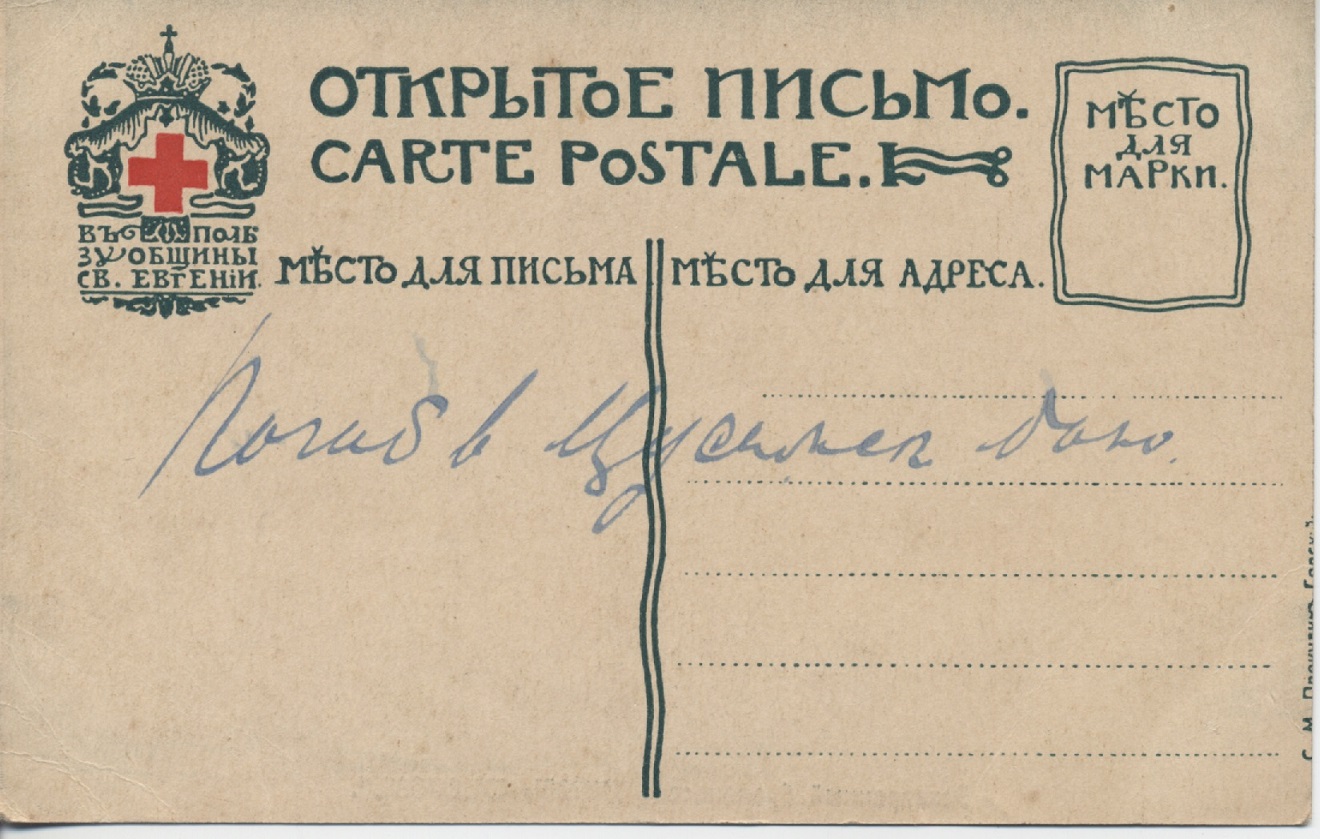 ОТКРЫТОЕ ПИСЬМО.
CARTE POSTALE.
МѢСТО
ДЛЯ
МАРКИ.
ВЪ ПОЛЬ
ЗУ ОБЩИНЫ
СВ. ЕВГЕНІИ.
МѢСТО ДЛЯ ПИСЬМА
МѢСТО ДЛЯ АДРЕСА.
Погиб в Цусимск бою.
С. М. Прокудин